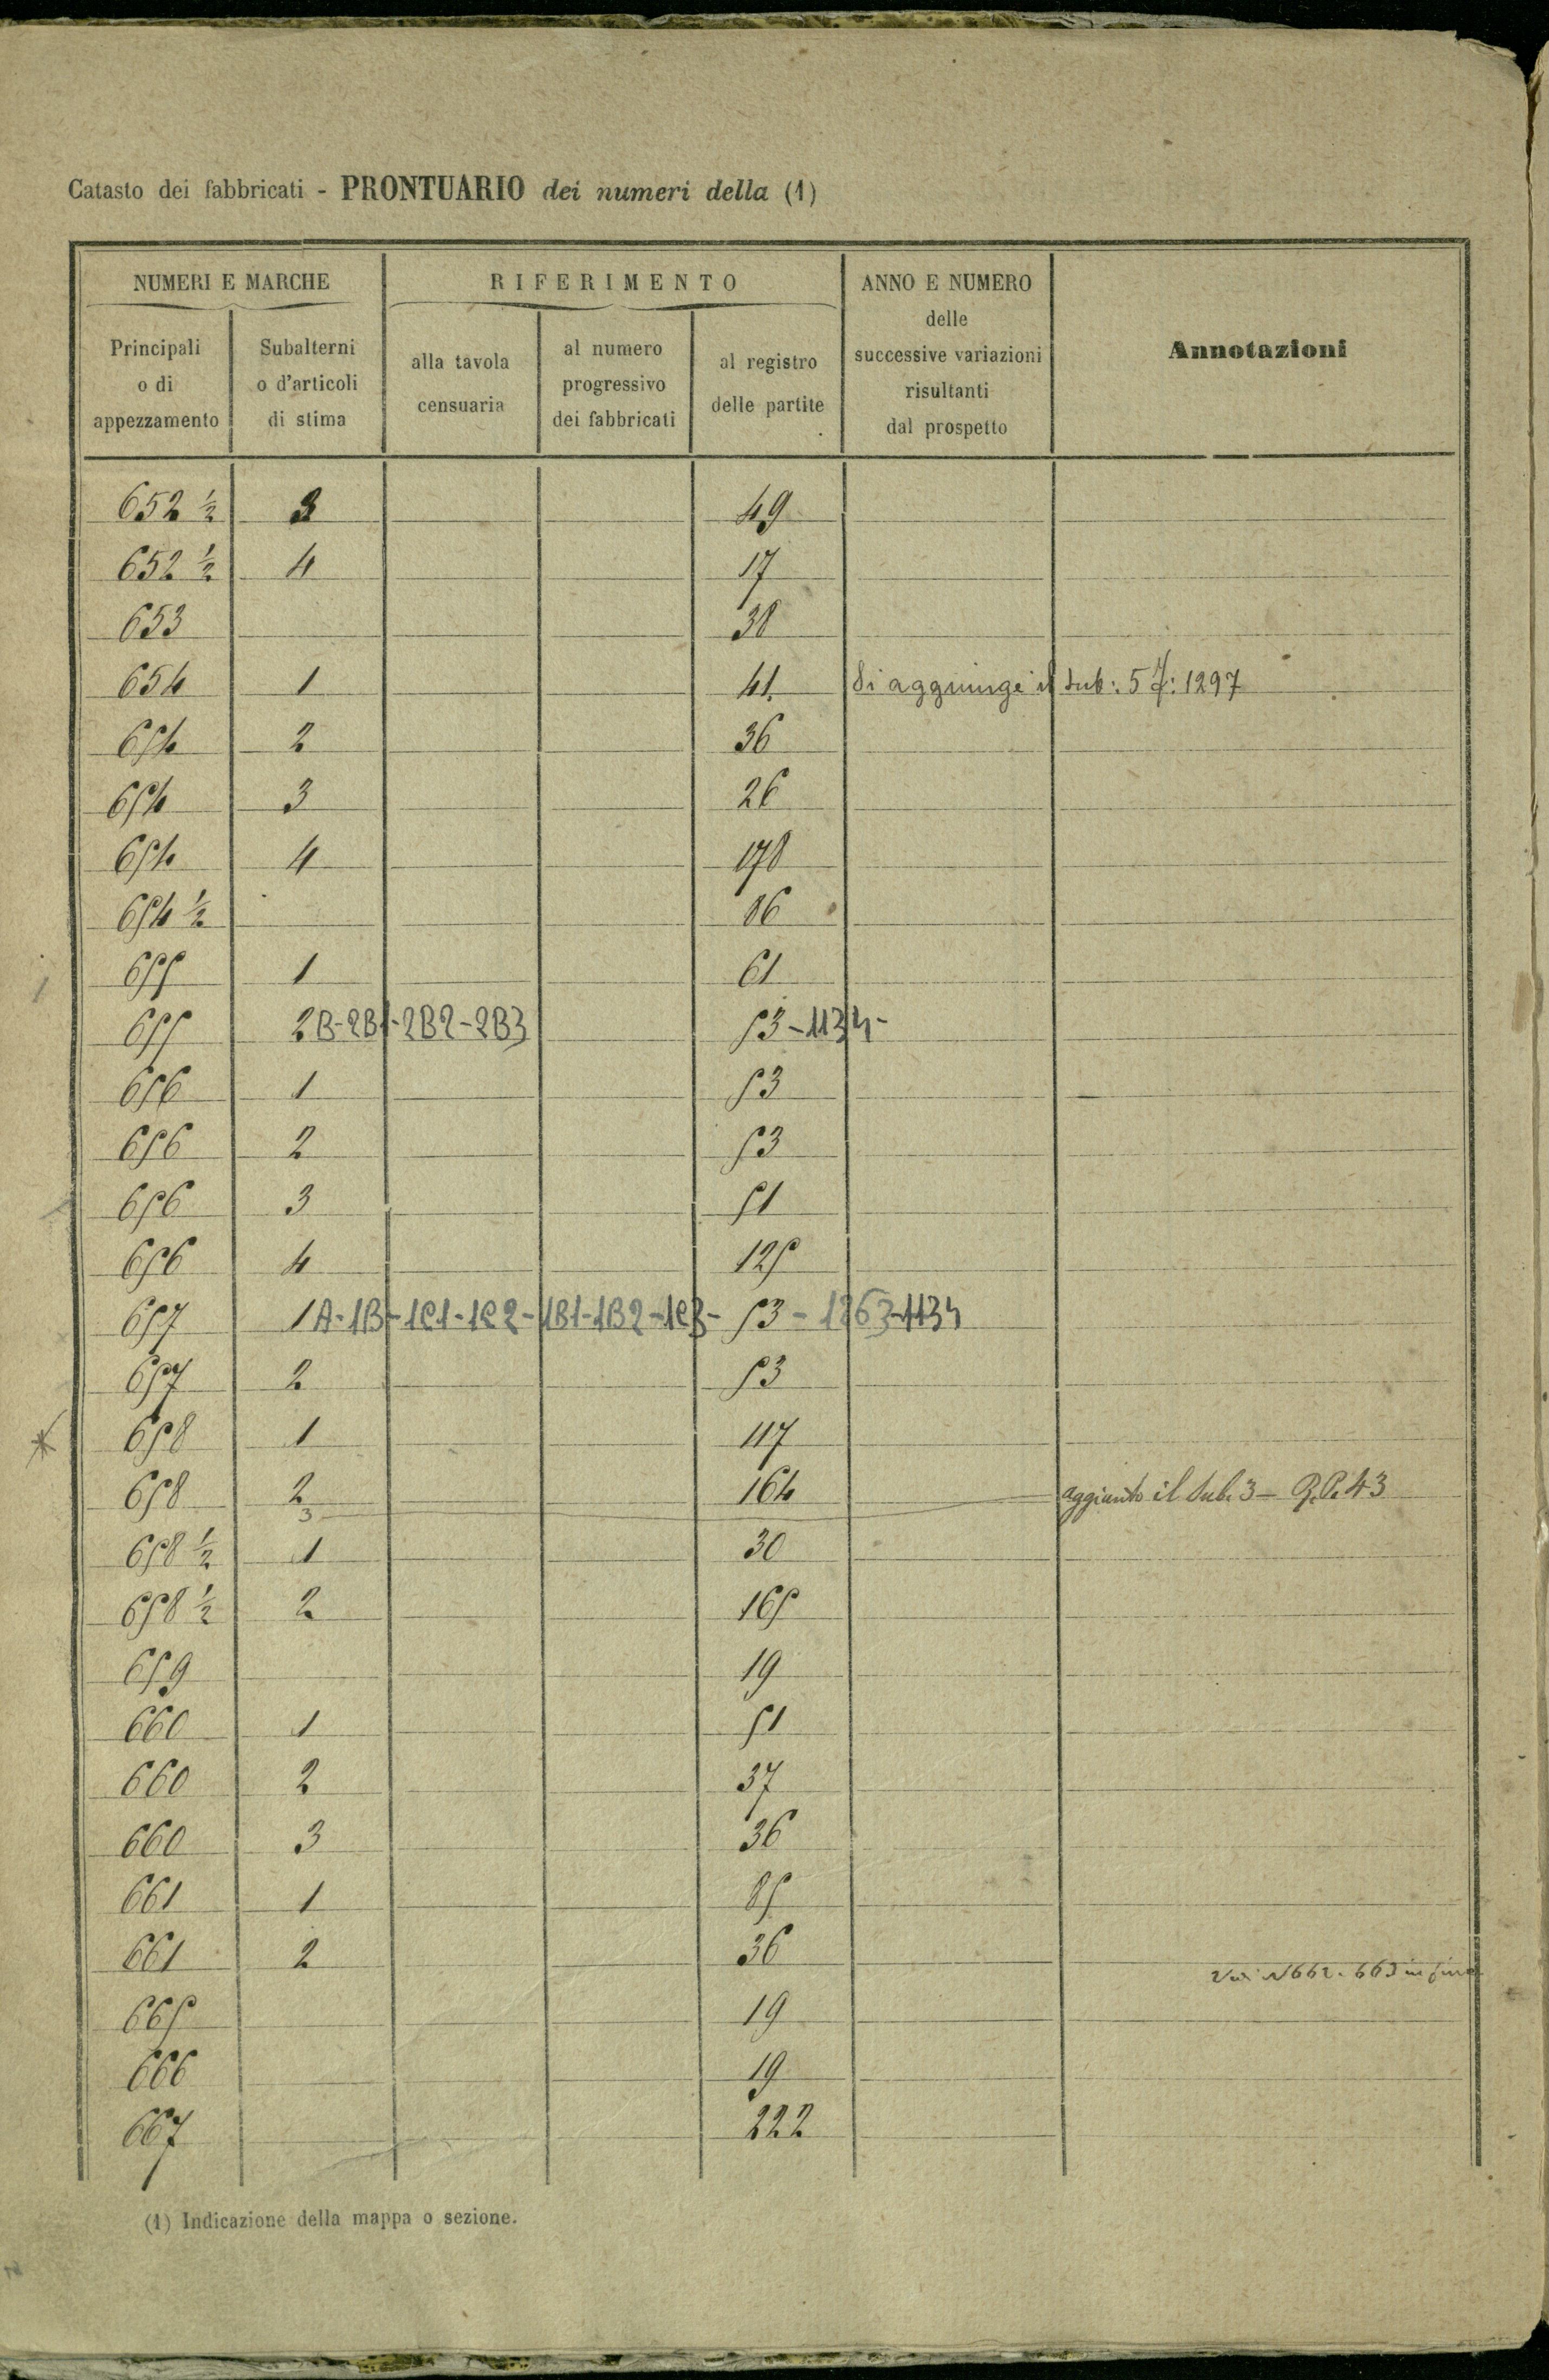 Catasto dei fabbricati - PRONTUARIO dei numeri della (1)
NUMERI E MARCHE
RIFERIMENTO
ANNO E NUMERO
delle
successive variazioni
risultanti
dal prospetto
Annotazioni
Principali
o di
appezzamento
Subalterni
o d'articoli
di stima
alla tavola
censuaria
al numero
progressivo
dei fabbricati
al registro
delle partite
652 ½ 3 49
652 ½ 4 17
653 38
654 1 41 Si aggiunge il sub: 5 1297
654 2 36
654 3 26
654 4 178
654 ½ 86
655 1 61
655 2B-2B1-2B2-2B3 53-1134-
656 1 53
656 2 53
656 3 51
656 4 125
657 1A-1B-1C1-1C2-1B1-1B2-1C3- 53-1263-1134
657 2 53
658 1 117
658 2 164 aggiunto il sub. 3 - R.P. 43
3
658 ½ 1 30
658 ½ 2 165
659 19
660 1 51
660 2 37
660 3 36
661 1 85
661 2 36
N 662. 663 in fine
665 19
666 19
667 222
(1) Indicazione della mappa o sezione.